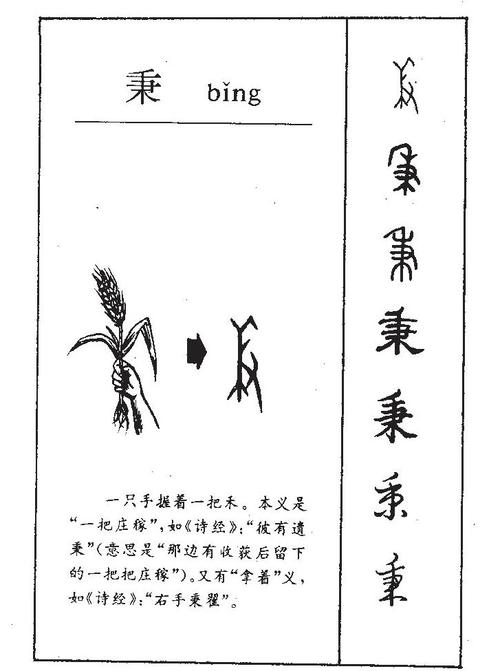 秉 bǐng
一只手握着一把禾。本义是
“一把庄稼”,如《诗经》:“彼有遗
秉”(意思是“那边有收获后留下
的一把把庄稼”)。又有“拿着”义,
如《诗经》:“右手秉翟”。
秉
秉
秉
秉
秉
秉
秉